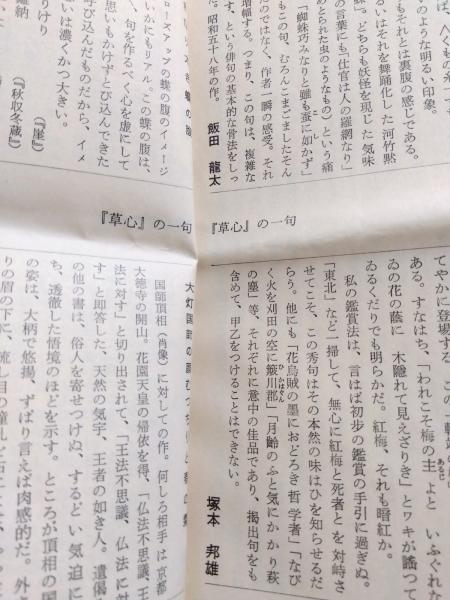 のような明るい印象。
それとは裏腹の感じである。
るいはそれを舞踊化した河竹黙
蛛』。どちらも妖怪を現じた気味
の言葉にも「仕官は人の羅網なり」
あとられた虫のようなもの）という痛
「蜘蛛巧みなりと雖も蚕に如かず」
もこの句、むろんこまごましたそん
たのではなく、作者一瞬の感受。それ
増幅する。つまり、この句は、複雑な
す、という俳句の基本的な骨法をしっ
た。昭和五十八年の作。
飯田 龍太
ローズアップの蝶の腹のイメージ
いかにもリアル。この蝶の腹は、
、句を作るべく心を虚にして
思いもかけずとび込んできた
呼び込んだものだから、イメ
は濃くかつ大きい。
『崖』
『秋収冬蔵』
『草心』の一句
てやかに登場する
ある。すなはち、「われこそ梅の主よと いふぐれな
ゐの花の蔭に 木隠れて見えざりき」とワキが謡つて
ゐるくだりでも明らかだ。紅梅、それも暗紅か。
私の鑑賞法は、言はば初歩の鑑賞の手引に過ぎぬ。
「東北」など一掃して、無心に紅梅と死者とを対峙さ
せてこそ、この秀句はその本然の味はひを知らせるだ
らう。他にも「花烏賊の墨におどろき哲学者」「なび
く火を刈田の空に簸川郡」「月齢のふと気にかかり萩
の塵」等、それぞれに意中の佳品であり、掲出句をも
含めて、甲乙をつけることはできない。
塚本 邦雄
『草心』の一句
国師頂相（肖像）に対しての作。何しろ相手は京都
大徳寺の開山。花園天皇の帰依を得、「仏法不思議、王
法に対す」と切り出されて、「王法不思議、仏法に対
す」と即答した、天然の気宇、王者の如き人。遺偈
の他の書は、俗人を寄せつけぬ、するどい気迫に
ち、透徹した悟境のほどを示す。ところが頂相の国
の姿は、大柄で悠揚、ずばり言えば肉感的だ。外